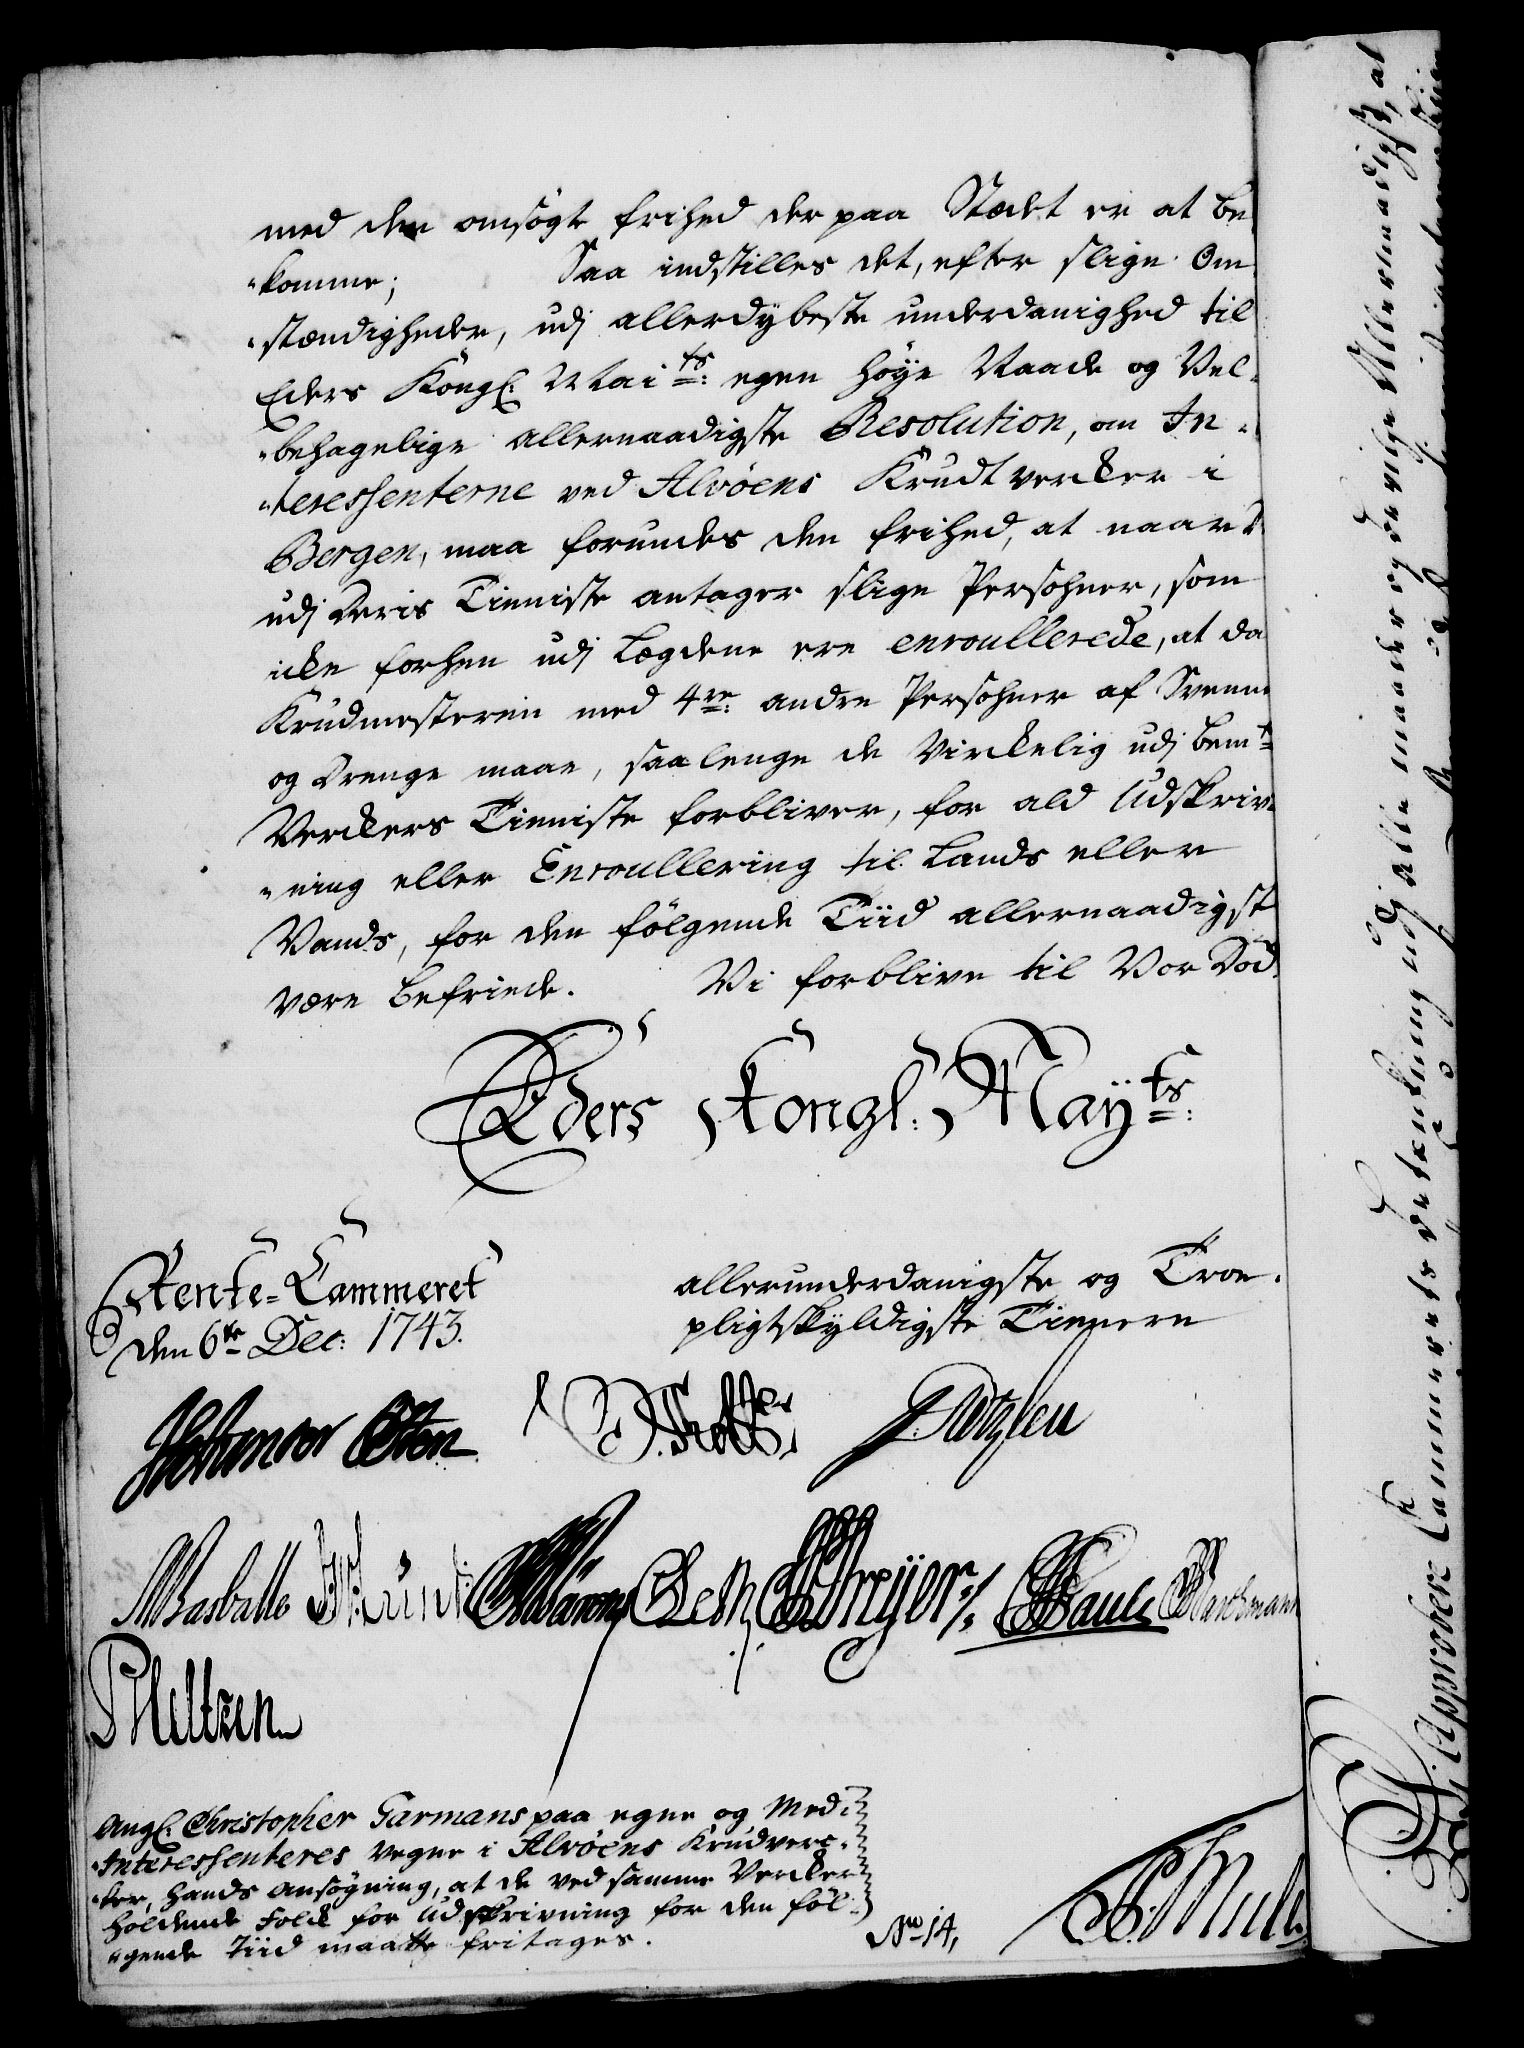 med den ansögte frihed der paa Stædet er at be
"komme; Saa indstilles det, efter slige Om
"stændigheder, udj allerdybeste underdanighed til
Eders Kongl: Mai<sup>ts</sup>: egen höye Naade og Vel-
"behagelige allernaadigste Resolution, om In-
"teressenterne ved Alvöens Krudtverker i
Bergen, maa forundes den frihed, at naar de
udj Deris Tieniste antager slige Persohner, som
icke forhen udj Lægdene ere enroullerede, at da
Krudmesteren med 4<sup>re</sup>: andre Persohner af Svenne
og Drenge maae, saalenge de Virckelig udj bem<sup>te</sup>
Verckers Tieniste forbliver, for ald Udskriv-
"ning eller Enroullering til Lands eller
Vands, for den fölgende Tiid allernaadigst
være befriede. Vi forblive til Vor Död.
Eders Kongl: May<sup>ts</sup>:
Rente-Cammeret
den 6<sup>te</sup> Dec: 1743.
allerunderdanigste og Troe-
pligtskyldigste Tienere
Holmsted
JBasballe
CDreyer
CPauli
Barthmann
PHeltzen
Ang: Christopher Garmans paa egne og Med-
"Interessenteres Vegne i Alvöens Krudverc-
"ker, hands ansögning, at de ved samme Vercker
holdende Folck for Udskrivning for den föl-
"gende Tiid maatte fritages.
No 14,
Approbere Cammerets betænkning udj alle maader og bevilge Allernaadigst, at